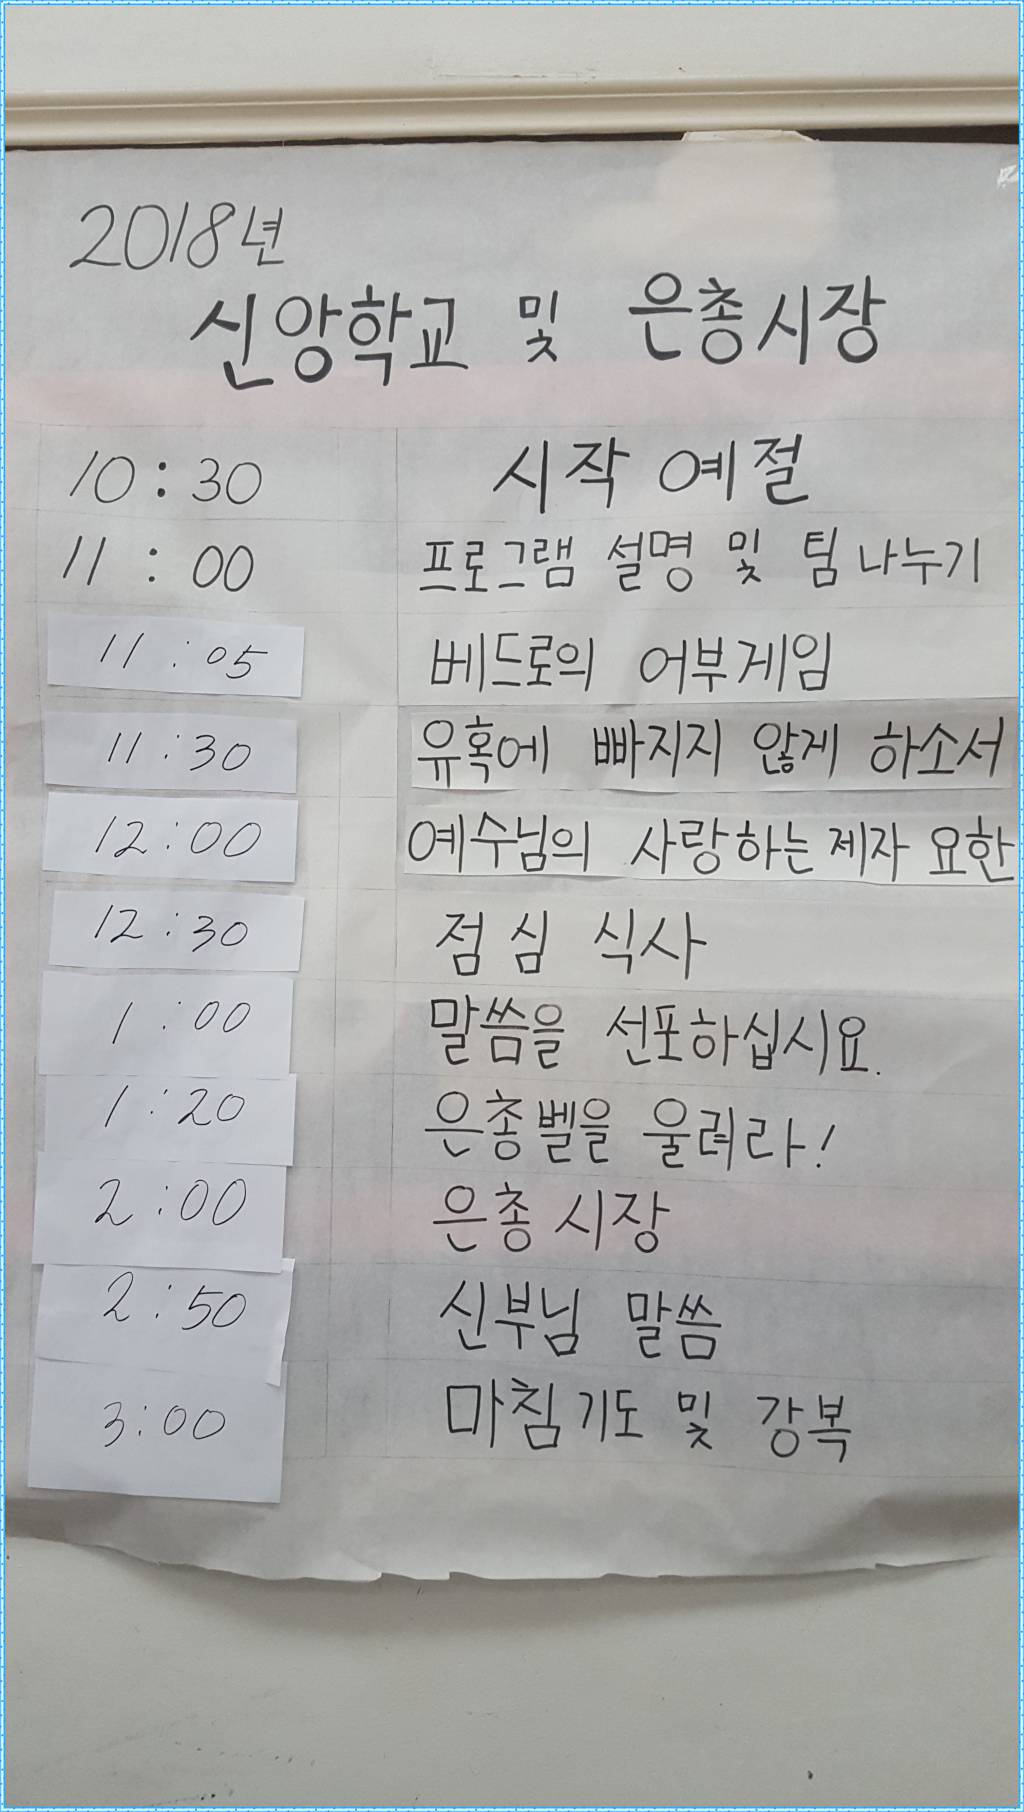 2018년
신앙학교 및 은총시장
10:30 시작 예절
11:00 프로그램 설명 및 팀 나누기
11:05 베드로의 어부게임
11:30 유혹에 빠지지 않게 하소서
12:00 예수님의 사랑하는 제자 요한
12:30 점심 식사
1:00 말씀을 선포하십시요.
1:20 은총벨을 울려라!
2:00 은총 시장
2:50 신부님 말씀
3:00 마침기도 및 강복